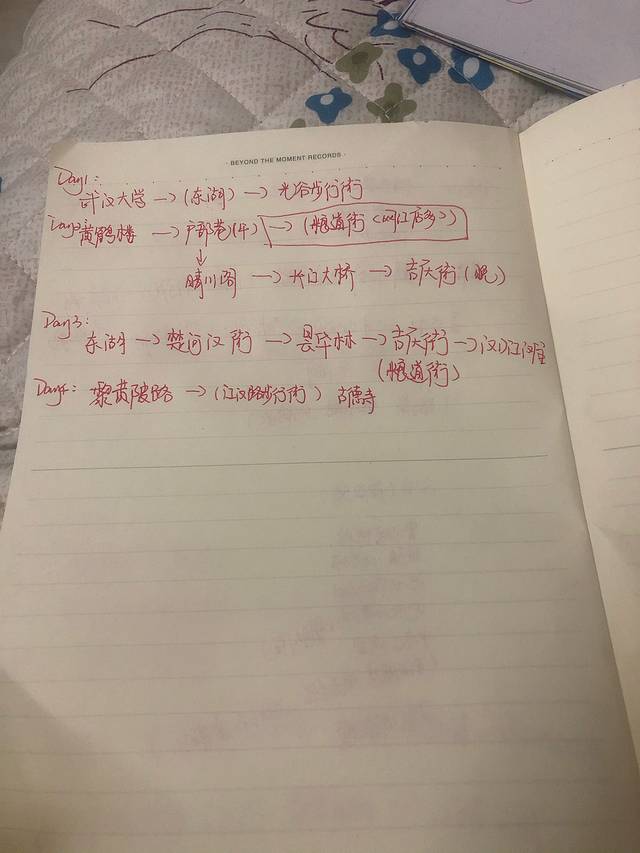 BEYOND THE MOMENT RECORDS
Day1:
武汉大学 → (东湖) → 光谷步行街
Day2: 黄鹤楼 → 户部巷(牛) → (粮道街<网红店多>)
↓
晴川阁 → 长江大桥 → 吉庆街(晚)
Day3:
东湖 → 楚河汉街 → 昙华林 → 吉庆街 → 汉口江滩
(粮道街)
Day4: 黎黄陂路 → (江汉路步行街) 古德寺